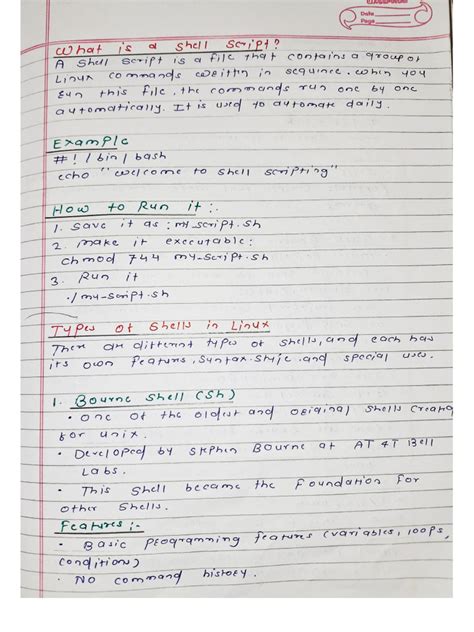 Date
Page
What is a Shell Script?
A Shell Script is a file that contains a group of
Linux commands written in sequince. when you
run this file, the commands run one by one
automatically. It is used to automate daily.
Example
#! / bin / bash
echo "welcome to shell scripting"
How to Run it :.
1. save it as : my_script.sh
2. make it executable :
chmod 744 my-script.sh
3. Run it
./my-script.sh
Types of Shells in Linux
There are different types of shells, and each has
its own features, syntax style and special uses.
1. Bourne Shell (Sh)
• One of the oldest and original shells created
for unix.
• Developed by Stephen Bourne at AT &T Bell
Labs.
• This Shell became the foundation for
other Shells.
Features :-
• Basic programming features (variables, loops,
conditions)
• No command history.